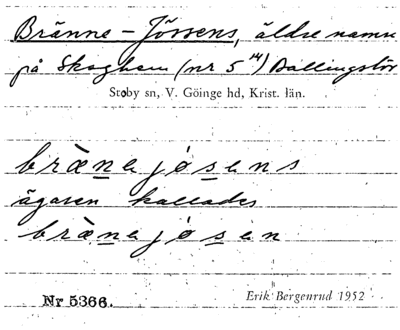 Bränne-Jössens, äldre namn
på Skoghem (nr 5¹⁴) Ballingslöv
Stoby sn, V. Göinge hd, Krist. län.
bràne jøsens
ägaren kallades
bràne jøsen
Nr 5366.
Erik Bergenrud 1952